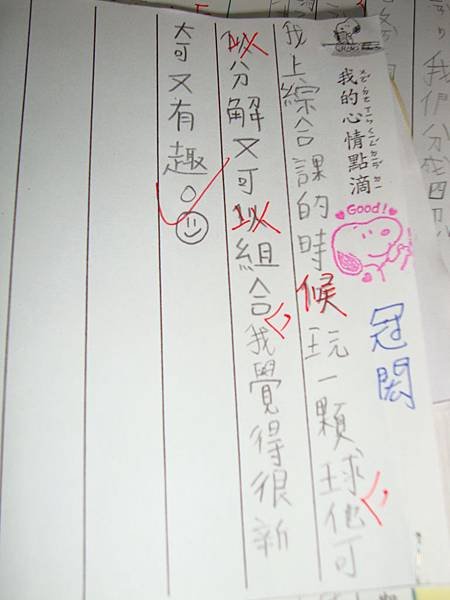 我們分成四
我的心情點滴
Good!
冠閎
我上綜合課的時候玩一顆球他可
以分解又可以組合我覺得很新
奇又有趣。